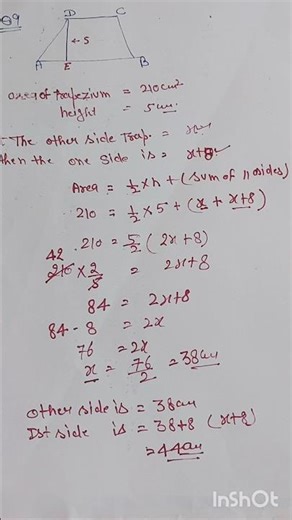 Q9
D C
← 5
A E B
area of Trapezium = 210cm²
height = 5cm
The other side Trap. = x
then the one side is = x+8
Area = ½×h + (sum of 11 sides)
210 = ½×5 + (x + x+8)
210 = 5/2 (2x+8)
42
210 × 2/5 = 2x+8
84 = 2x+8
84 - 8 = 2x
76 = 2x
x = 76/2 = 38cm
other side is = 38cm
Ist side is = 38+8 (x+8)
=44cm
InShOt